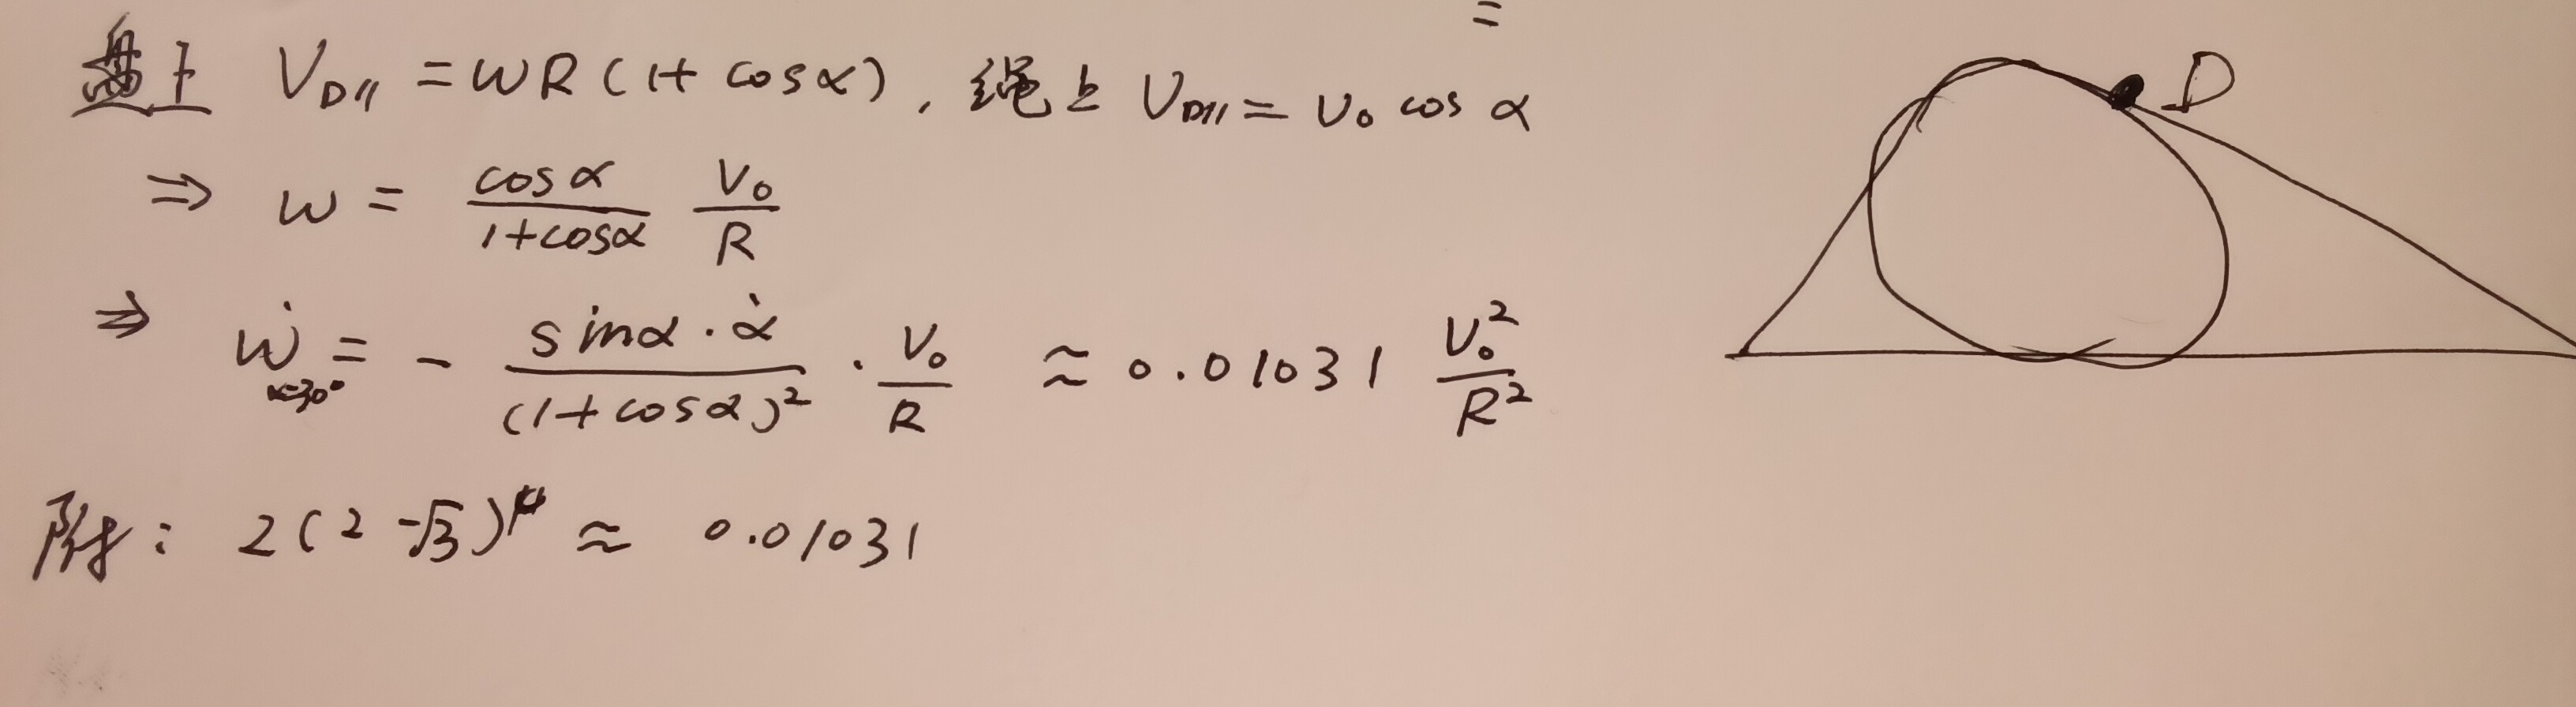 =
盘上 V_{D//} = ωR(1+cosα), 绳上 V_{D//} = V₀ cos α
D
⇒ ω = \frac{cosα}{1+cosα} \frac{V₀}{R}
⇒ \dot{ω}_{α=30°} = - \frac{sinα·\dot{α}}{(1+cosα)²} · \frac{V₀}{R} ≈ 0.01031 \frac{V₀²}{R²}
附: 2(2-√3)⁴ ≈ 0.01031